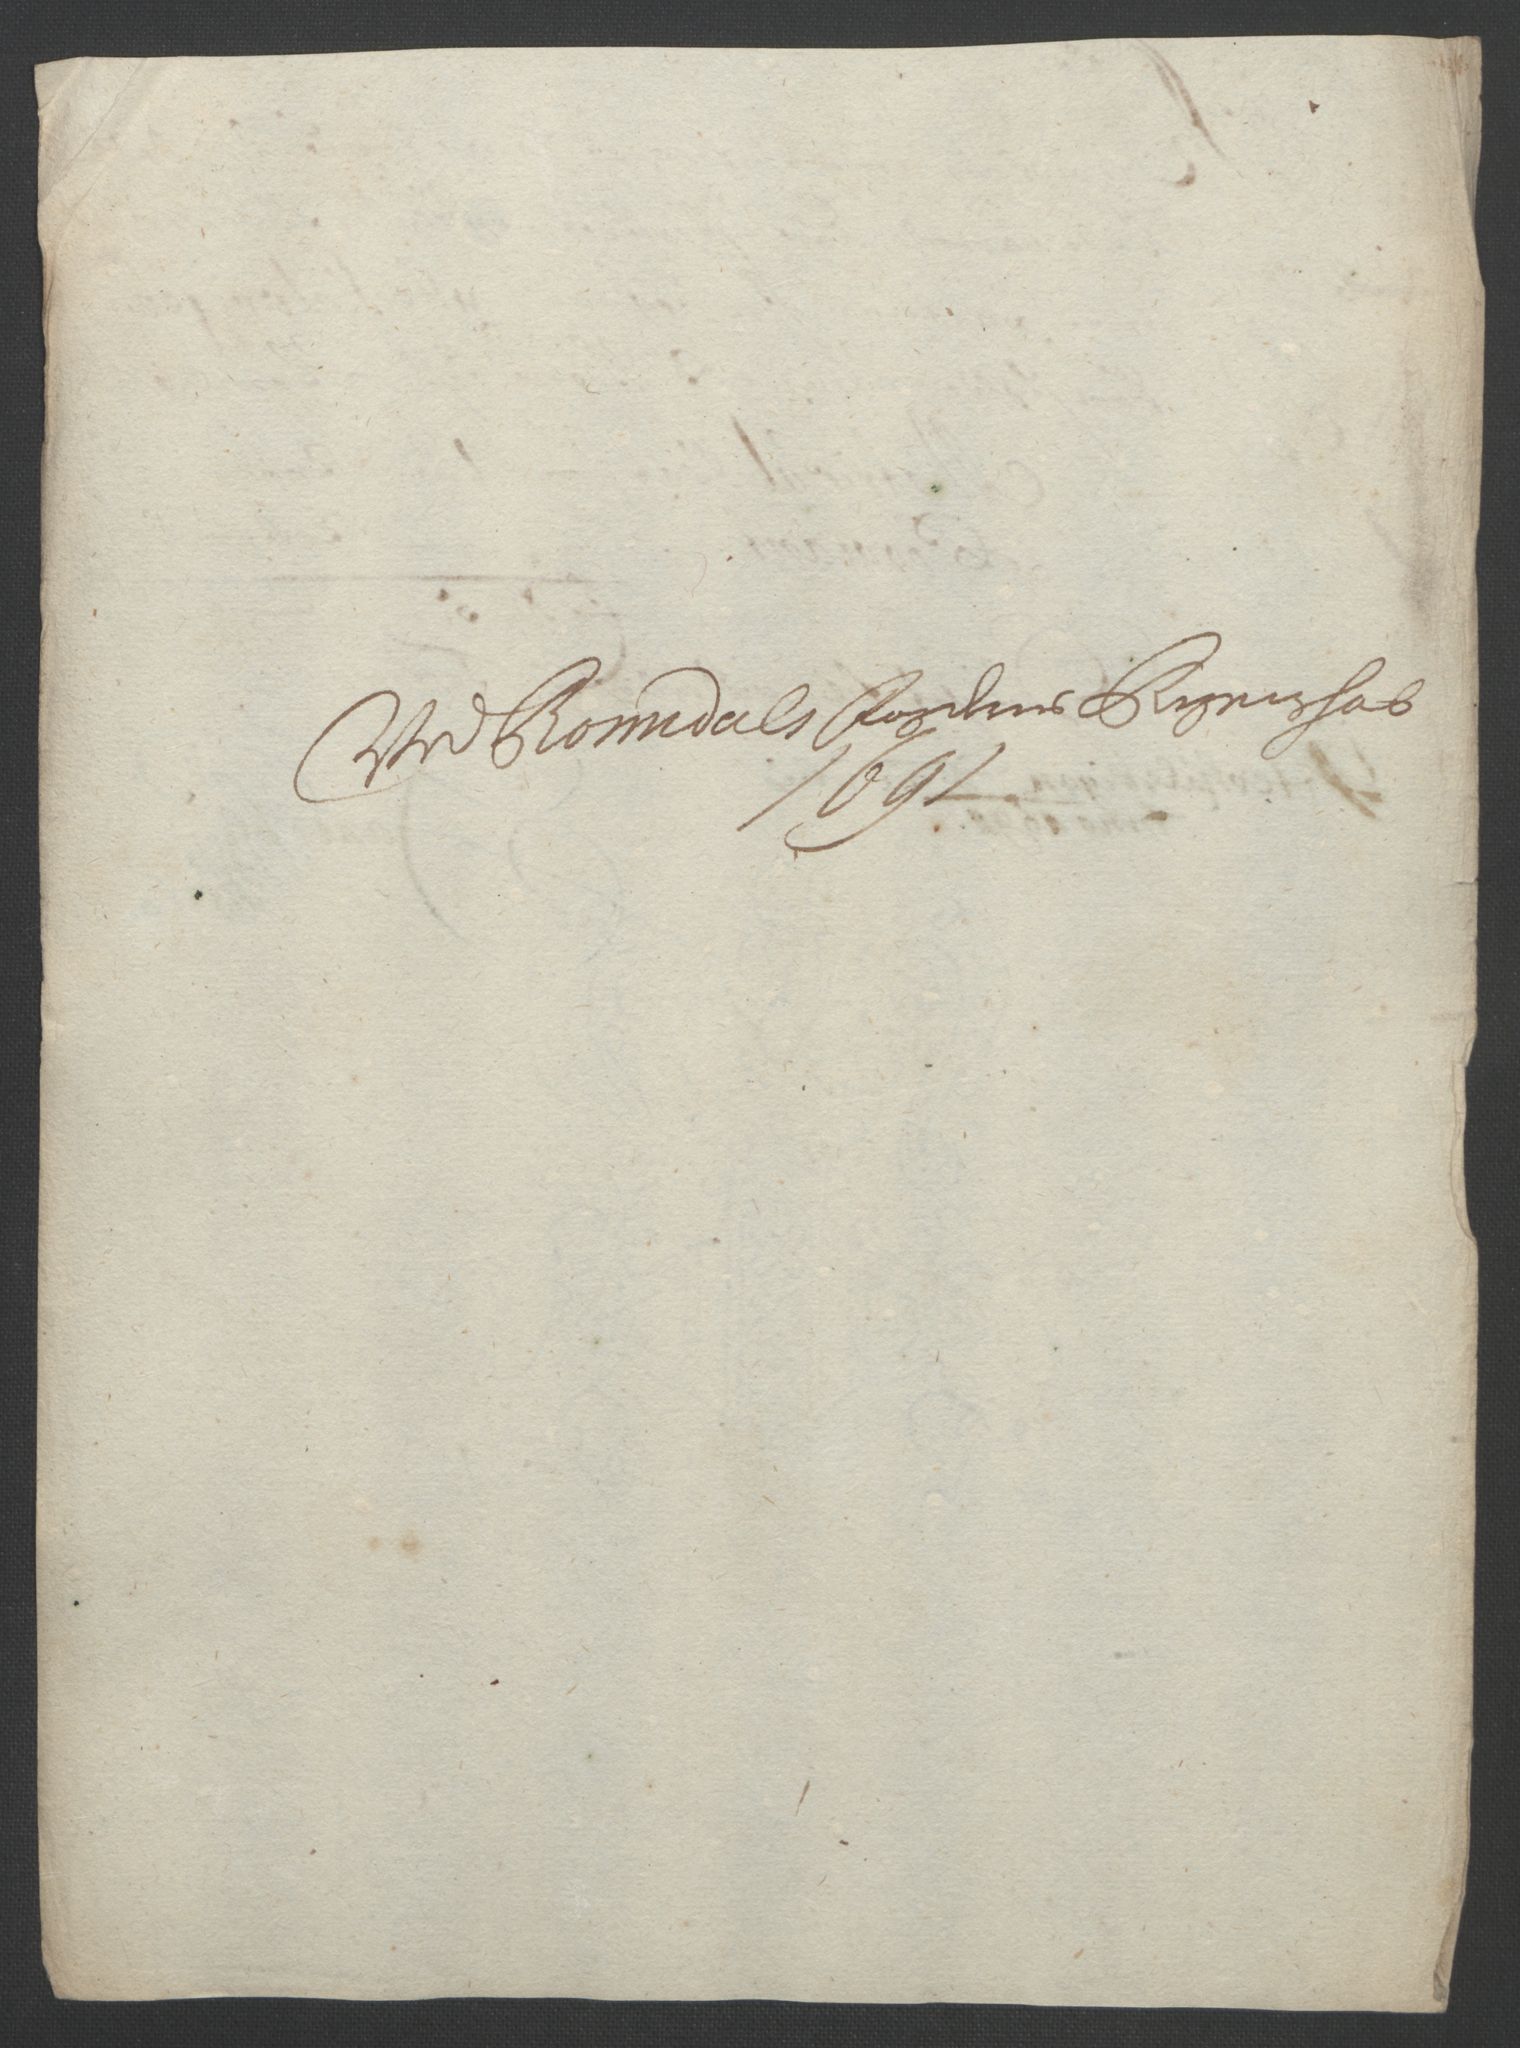 Ved Romsdals fogderis Regenschab
1691